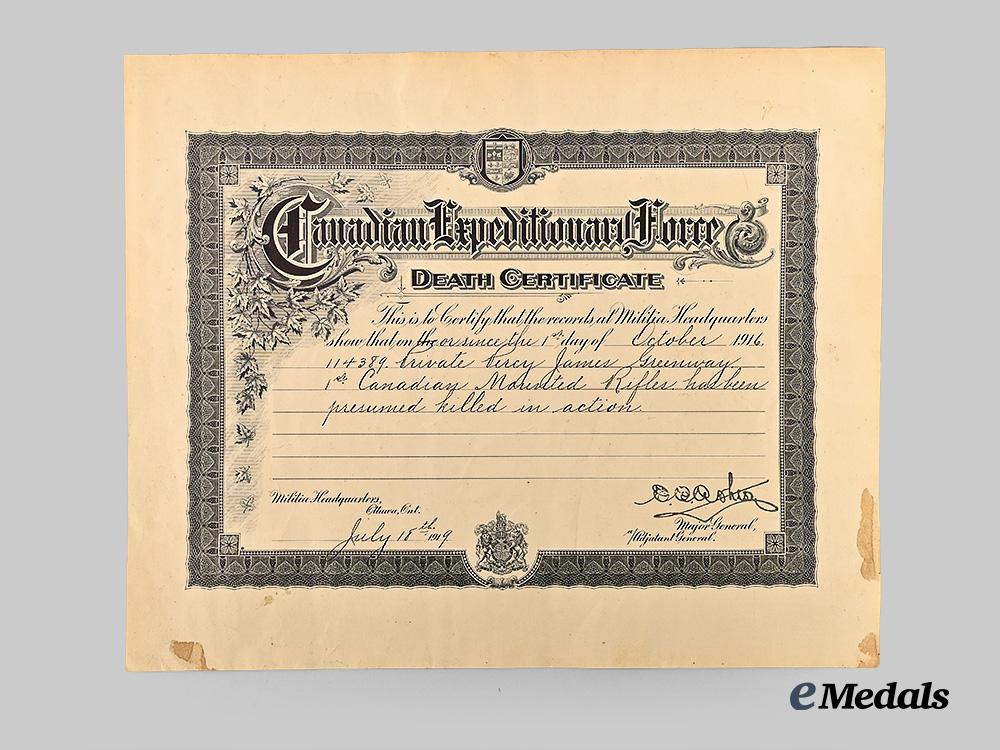 Canadian Expeditionary Force
DEATH CERTIFICATE
This is to Certify that the records, at Militia Headquarters
show that on the or since the 1st day of October 1916.
114389. Private Percy James Greenway
1st. Canadian Mounted Rifles has been
presumed killed in action.
Militia Headquarters,
Ottawa, Ont.
July 18th. 1919
Major General,
Adjutant General.
eMedals